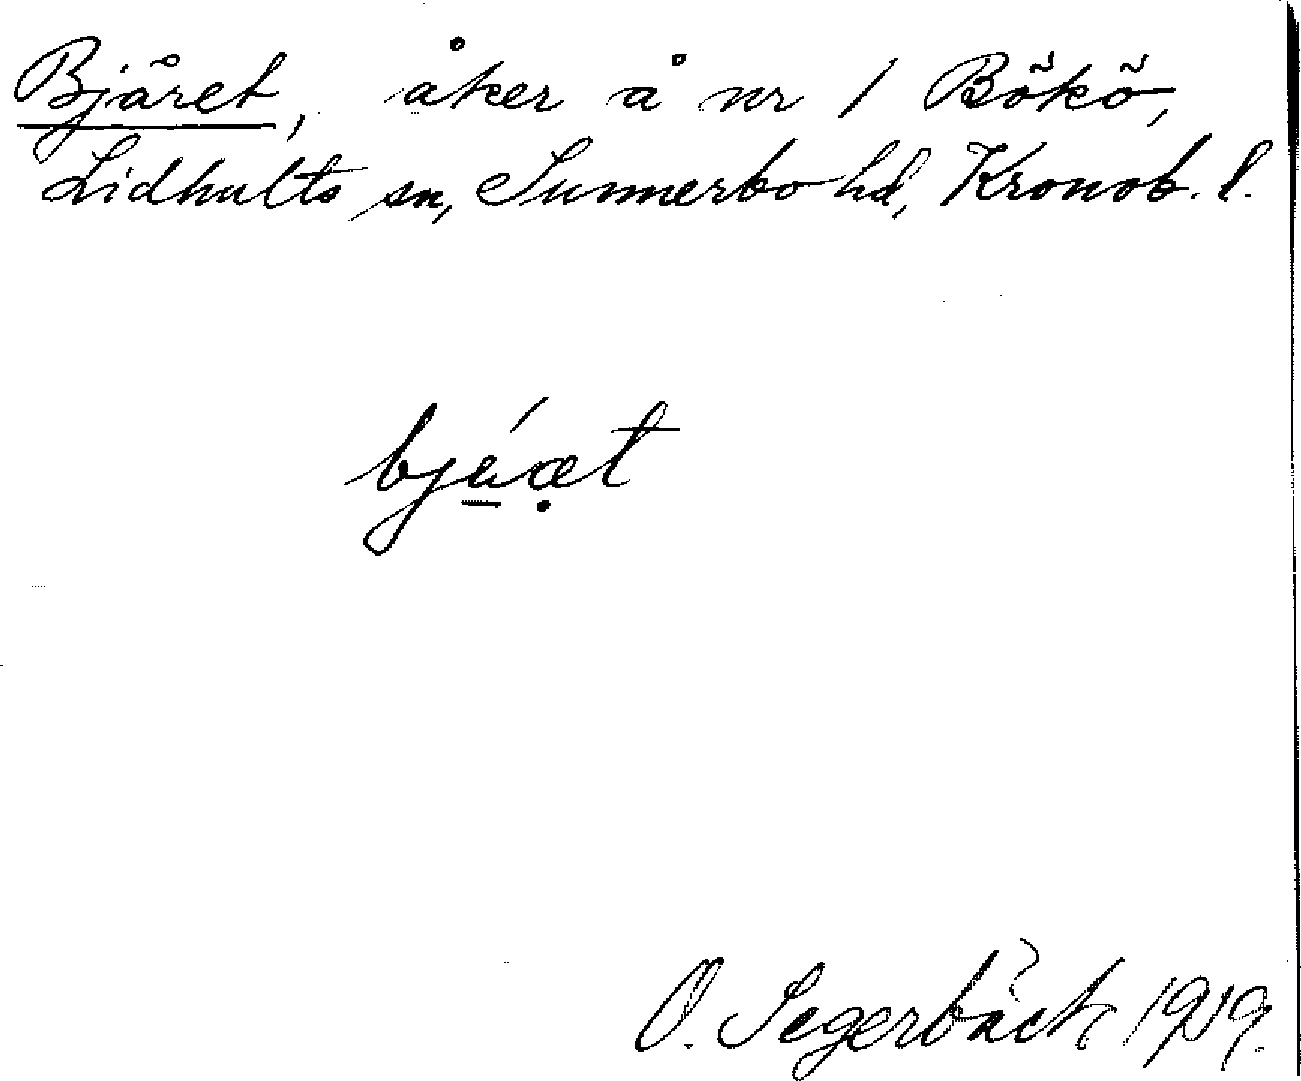 Bjåret, åker å nr 1 Bökö,
Lidhults sn, Sunnerbo hd, Kronob. l.
bjáæt
O. Segerbäck 1919.